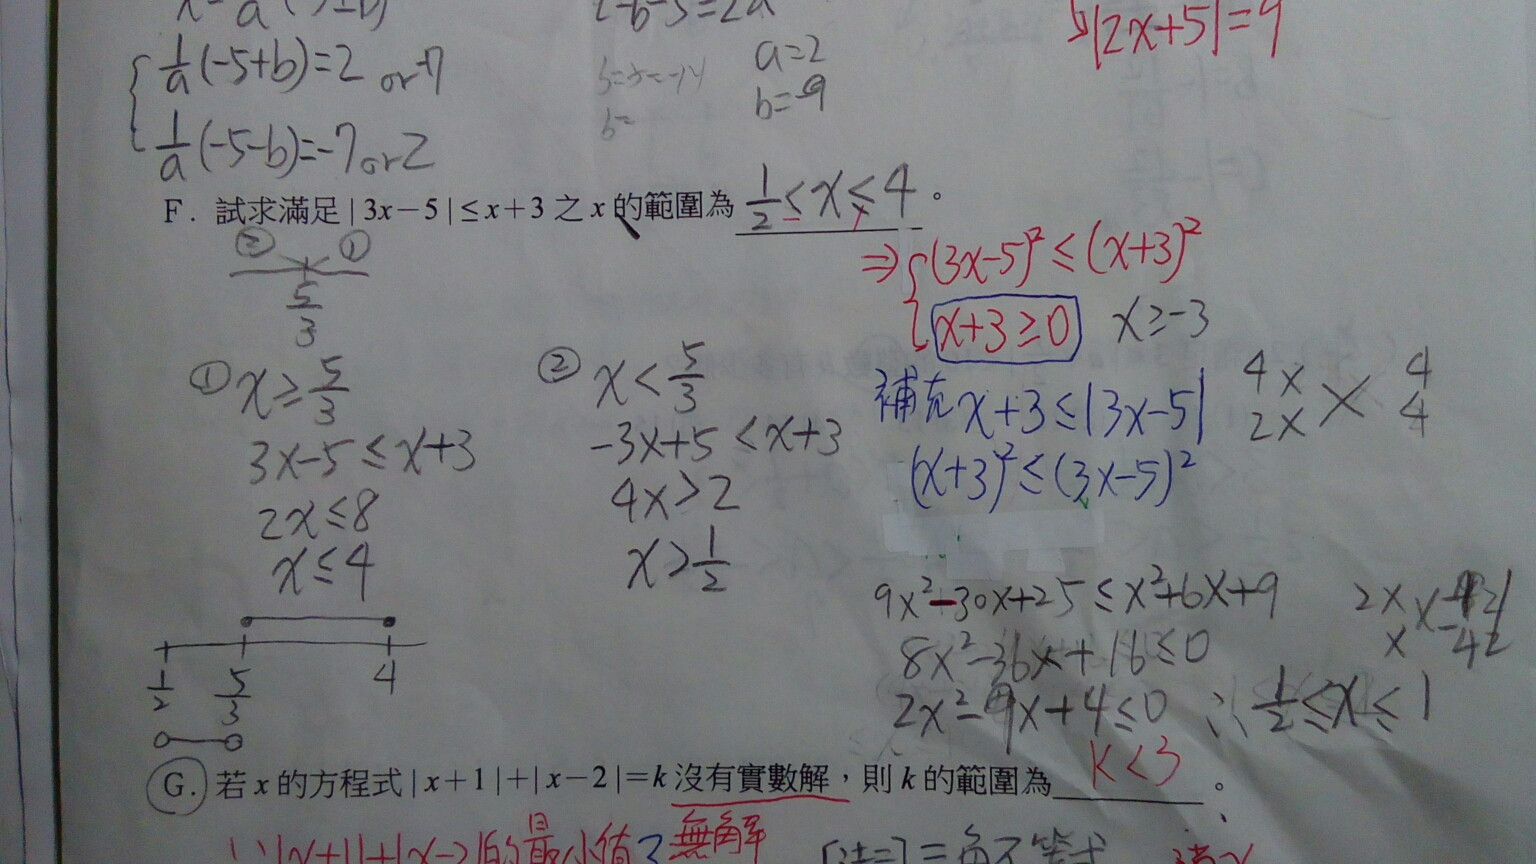 |2x+5|=9
1/a(-5+b)=2 or -7
a=2
b=-9
b=
1/a(-5-b)=-7 or 2
F. 試求滿足|3x-5|≤x+3之x的範圍為 1/2≤x≤4。
② ①
5/3
⇒{(3x-5)²≤(x+3)²
x+3≥0 x≥-3
① x≥5/3
3x-5≤x+3
2x≤8
x≤4
② x<5/3
-3x+5<x+3
4x>2
x>1/2
補充 x+3≤|3x-5|
(x+3)²≤(3x-5)²
4x 4
2x 4
9x²-30x+25≤x²+6x+9
8x²-36x+16≤0
2x²-9x+4≤0 ∴ 1/2≤x≤1
2x
x
1/2 5/3 4
G. 若x的方程式|x+1|+|x-2|=k沒有實數解,則k的範圍為 k<3。
∵|x+1|+|x-2|的最小值 無解